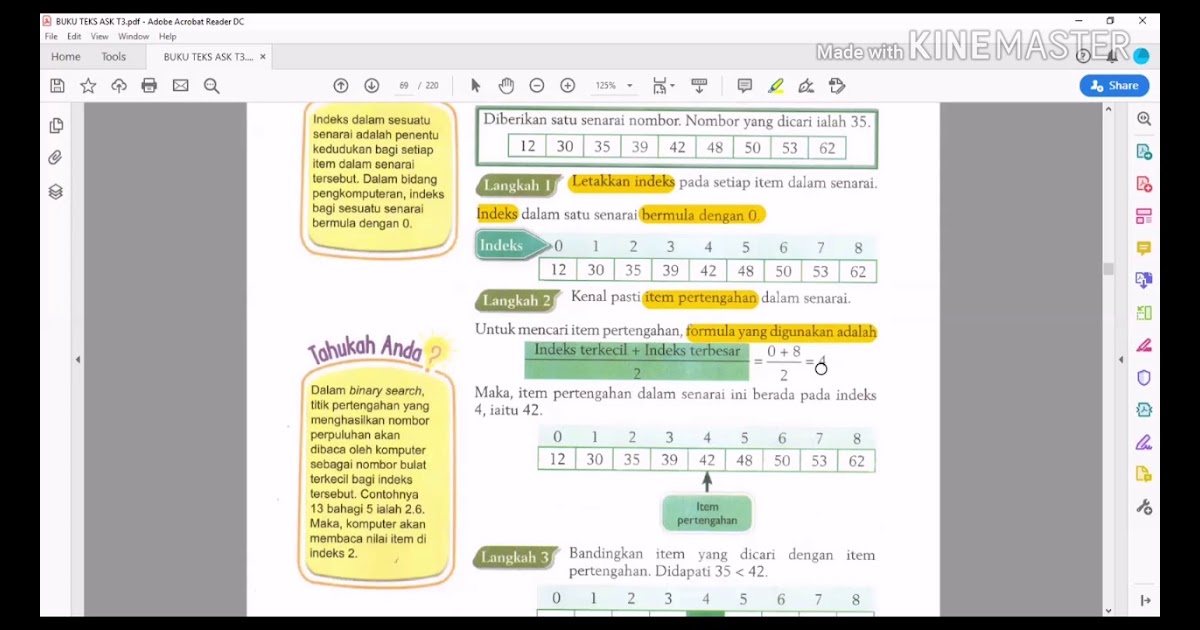 BUKU TEKS ASK T3.pdf - Adobe Acrobat Reader DC
File Edit View Window Help
Made with KINEMASTER
Home Tools BUKU TEKS ASK T3.... ×
69 / 220 125% Share
Indeks dalam sesuatu
senarai adalah penentu
kedudukan bagi setiap
item dalam senarai
tersebut. Dalam bidang
pengkomputeran, indeks
bagi sesuatu senarai
bermula dengan 0.
Tahukah Anda ?
Dalam binary search,
titik pertengahan yang
menghasilkan nombor
perpuluhan akan
dibaca oleh komputer
sebagai nombor bulat
terkecil bagi indeks
tersebut. Contohnya
13 bahagi 5 ialah 2.6.
Maka, komputer akan
membaca nilai item di
indeks 2.
Diberikan satu senarai nombor. Nombor yang dicari ialah 35.
12 30 35 39 42 48 50 53 62
Langkah 1 Letakkan indeks pada setiap item dalam senarai.
Indeks dalam satu senarai bermula dengan 0.
Indeks 0 1 2 3 4 5 6 7 8
12 30 35 39 42 48 50 53 62
Langkah 2 Kenal pasti item pertengahan dalam senarai.
Untuk mencari item pertengahan, formula yang digunakan adalah
Indeks terkecil + Indeks terbesar
2
= 0 + 8
2
=
Maka, item pertengahan dalam senarai ini berada pada indeks
4, iaitu 42.
0 1 2 3 4 5 6 7 8
12 30 35 39 42 48 50 53 62
Item
pertengahan
Langkah 3 Bandingkan item yang dicari dengan item
pertengahan. Didapati 35 < 42.
0 1 2 3 4 5 6 7 8